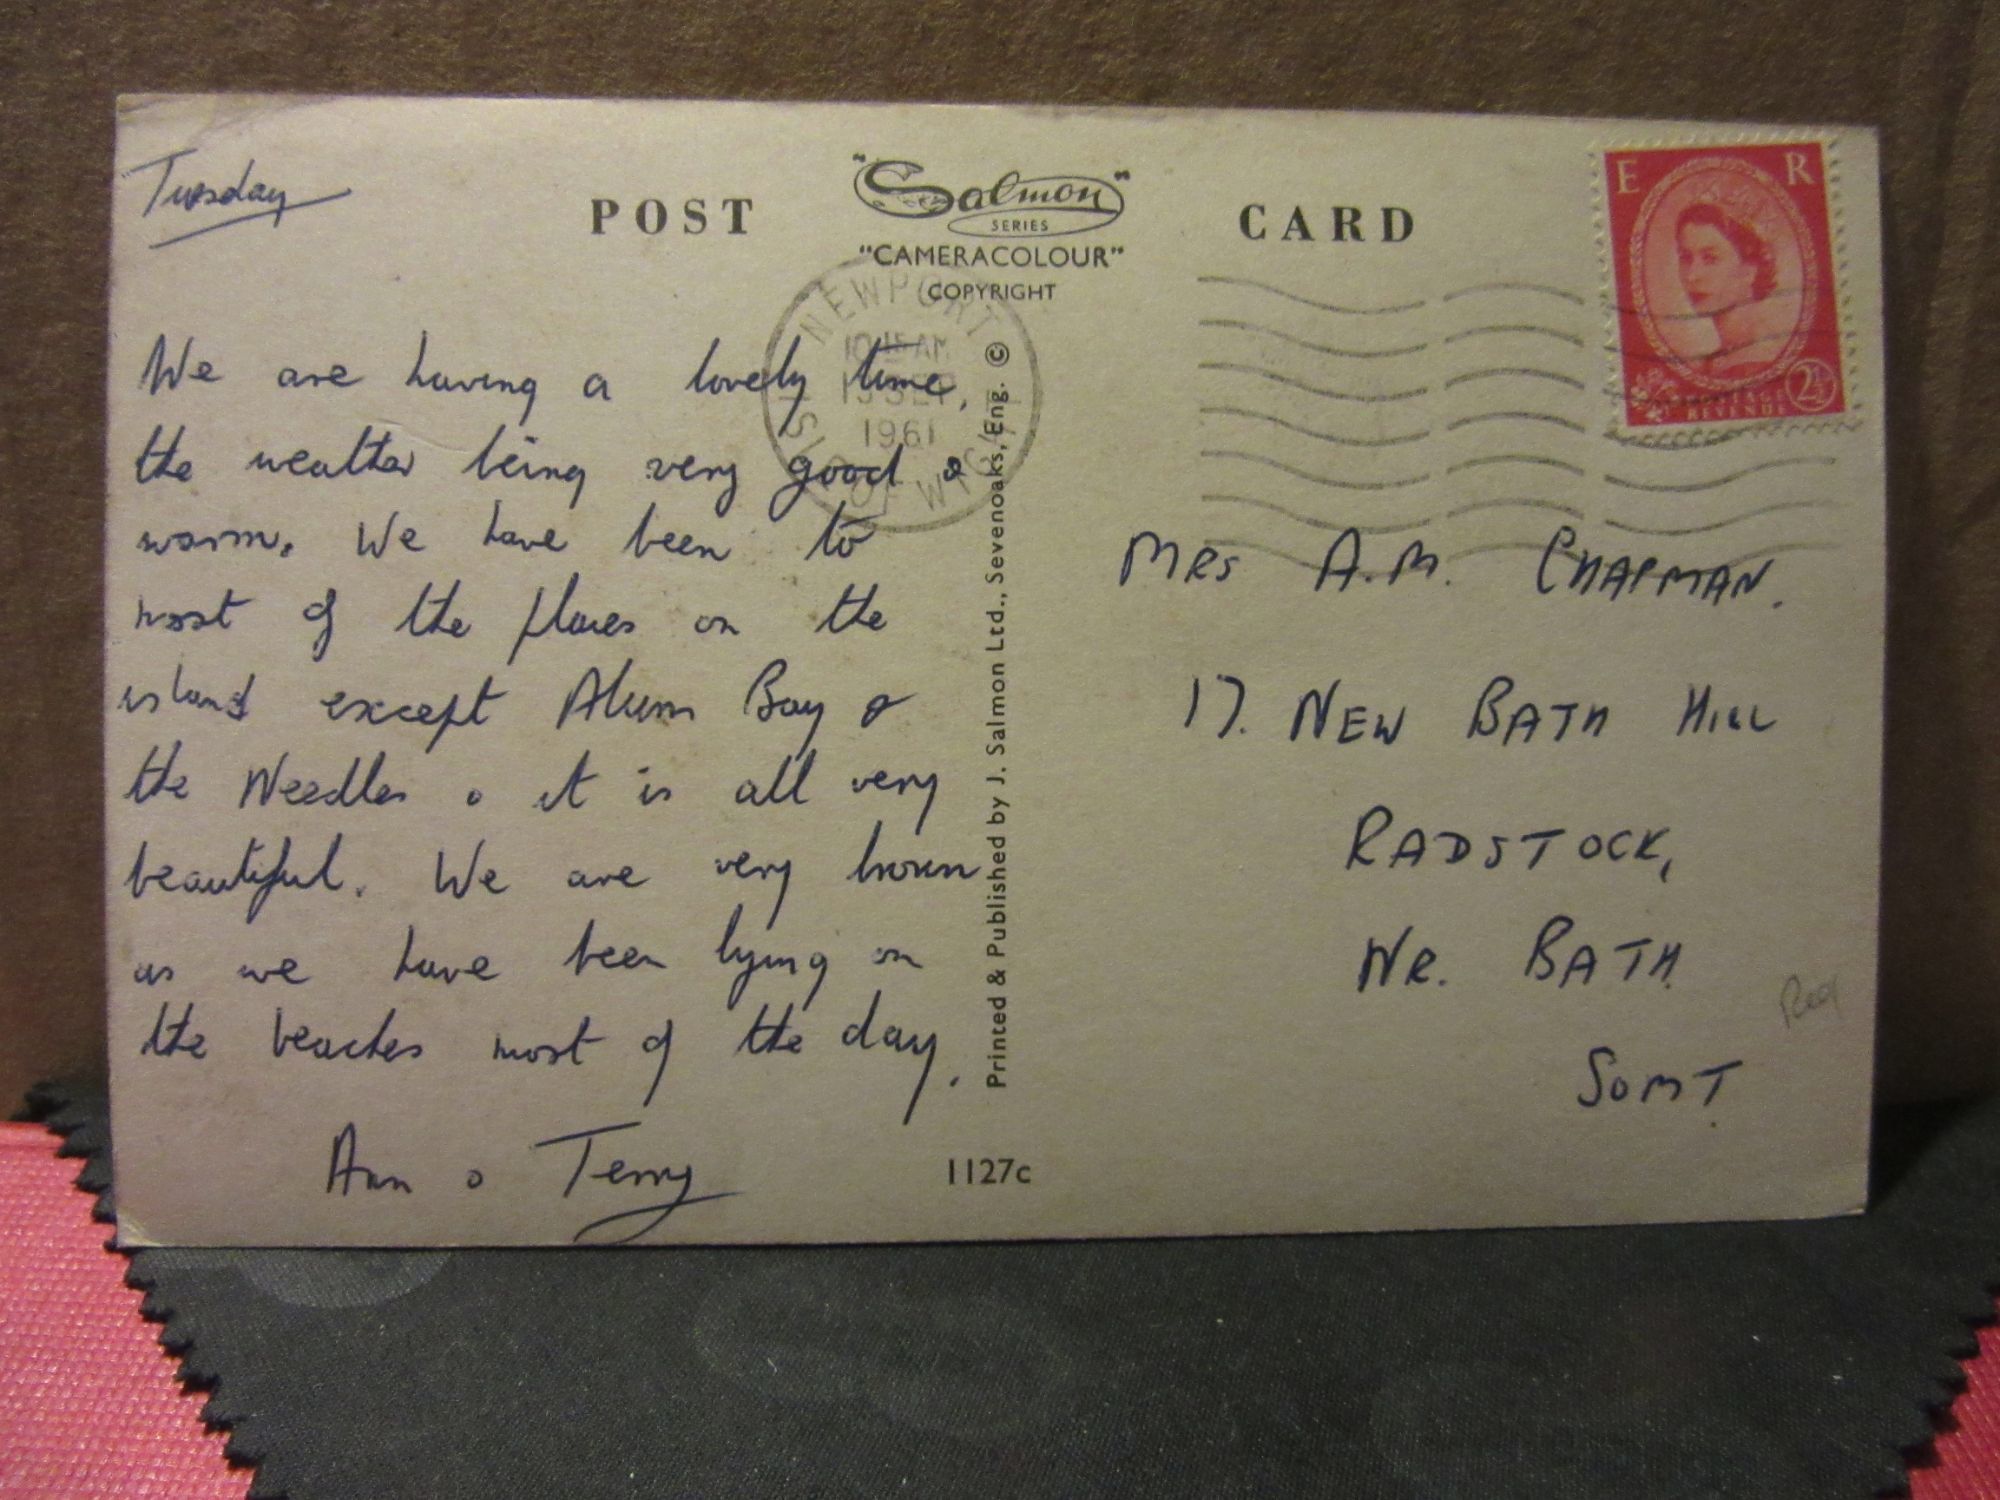 Tuesday
POST CARD
"Salmon"
SERIES
"CAMERACOLOUR"
COPYRIGHT
NEWPORT
ISLE OF WIGHT
SEP
1961
E R
POSTAGE
REVENUE
2½
We are having a lovely time,
the weather being very good &
warm. We have been to
most of the places on the
island except Alum Bay &
the Needles & it is all very
beautiful. We are very brown
as we have been lying on
the beaches most of the day.
Ann & Terry
Printed & Published by J. Salmon Ltd., Sevenoaks, Eng. ©
1127c
MRS A.M. CHAPMAN.
17. NEW BATH HILL
RADSTOCK,
NR. BATH
SOMT.